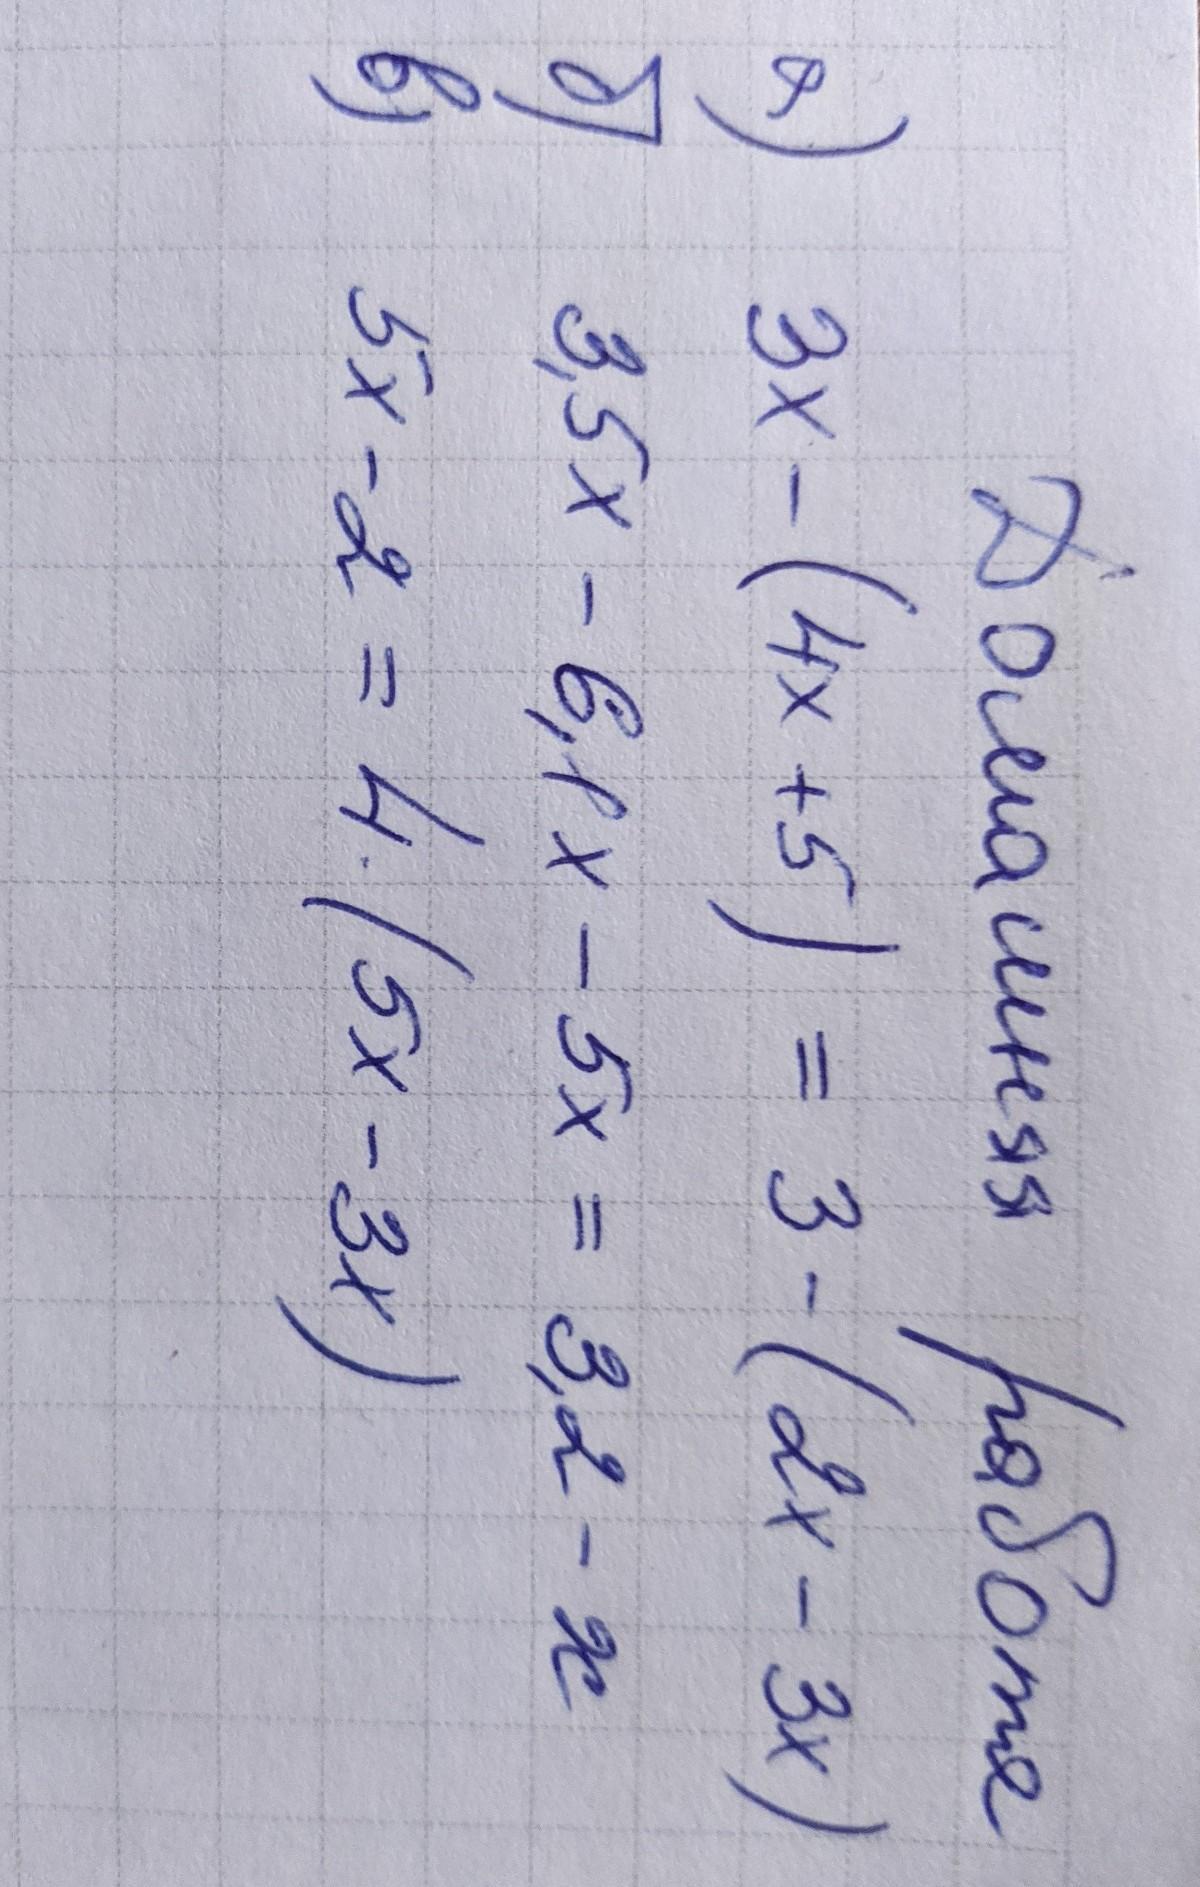 Домашняя работа
а) 3x - (4x + 5) = 3 - (2x - 3x)
б) 3,5x - 6,1x - 5x = 3,2 - x
в) 5x - 2 = 4 · (5x - 3x)